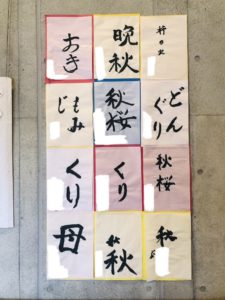 あき
晩秋
もみ
じ
秋桜
どん
ぐり
くり
くり
秋桜
母
秋
秋
秋